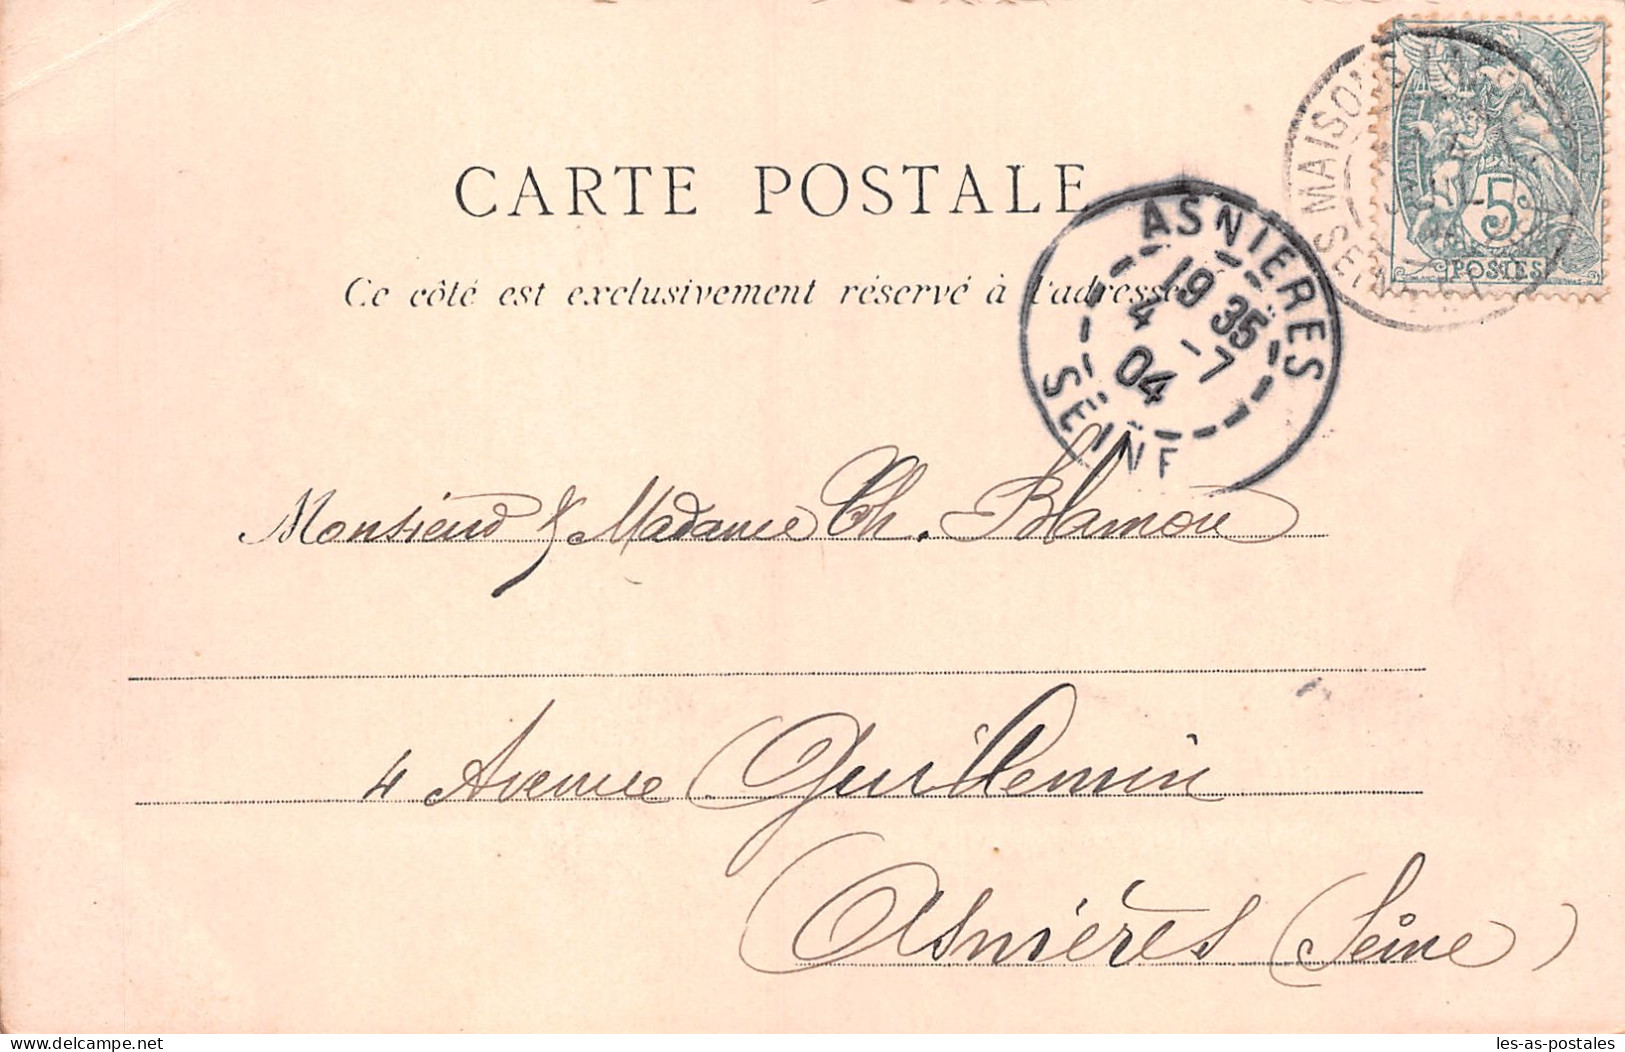 CARTE POSTALE
Ce côté est exclusivement réservé à l'adresse
ASNIERES
19 35
4 - 7
04
SEINE
MAISONS
SEINE
5
POSTES
Monsieur & Madame Ch. Blamou
4 Avenue Guillemin
Asnières (Seine)
delcampe.net
les-as-postales